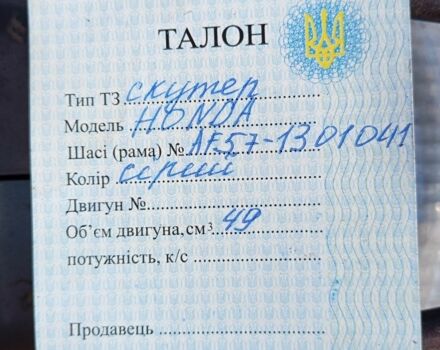 ТАЛОН
Тип ТЗ скутер
Модель HONDA
Шасі (рама) № AF57-1301041
Колір серий
Двигун №
Об’єм двигуна,см³ 49
потужність, к/с
Продавець